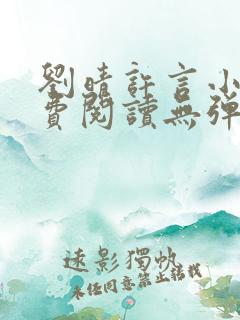 劉晴許言小
費閱讀無彈
遠影獨帆
未經同意禁止轉載